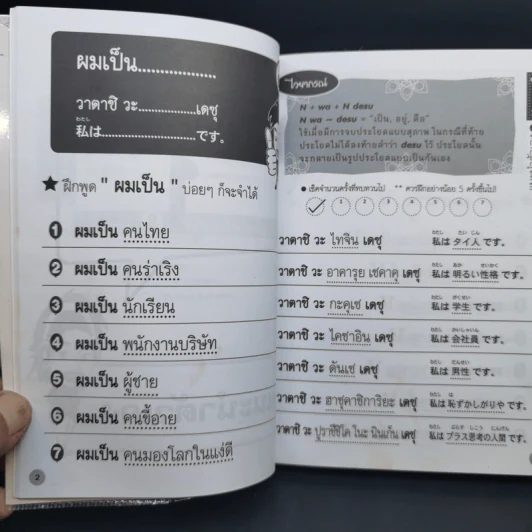 ผมเป็น..................
วาตาชิ วะ...............เดซุ
わたし
私は........................です。
★ ฝึกพูด " ผมเป็น " บ่อยๆ ก็จะจำได้
1 ผมเป็น คนไทย
2 ผมเป็น คนร่าเริง
3 ผมเป็น นักเรียน
4 ผมเป็น พนักงานบริษัท
5 ผมเป็น ผู้ชาย
6 ผมเป็น คนขี้อาย
7 ผมเป็น คนมองโลกในแง่ดี
2
ไวยากรณ์
N + wa + N desu
N wa ~ desu = "เป็น, อยู่, คือ"
ใช้เมื่อมีการจบประโยคแบบสุภาพ ในกรณีที่ท้าย
ประโยคไม่ได้ลงท้ายคำว่า desu ไว้ ประโยคนั้น
จะกลายเป็นรูปประโยคแบบเป็นกันเอง
● เช็คจำนวนครั้งที่ทบทวนไป ** ควรฝึกอย่างน้อย 5 ครั้งขึ้นไป!
1 2 3 4 5 6 7
わたし たい じん
วาตาชิ วะ ไทจิน เดซุ 私は タイ人 です。
わたし あか せいかく
วาตาชิ วะ อาคารุย เซคาคุ เดซุ 私は 明るい性格 です。
わたし がくせい
วาตาชิ วะ กะคุเซ เดซุ 私は 学生 です。
わたし かいしゃいん
วาตาชิ วะ ไคชาอิน เดซุ 私は 会社員 です。
わたし だんせい
วาตาชิ วะ ดันเซ เดซุ 私は 男性 です。
わたし は
วาตาชิ วะ ฮาซุคาชิการิยะ เดซุ 私は 恥ずかしがりや です。
わたし ぷらす しこう にんげん
วาตาชิ วะ ปุราซึชิโค โนะ นินเก็น เดซุ 私は プラス思考の人間 です。